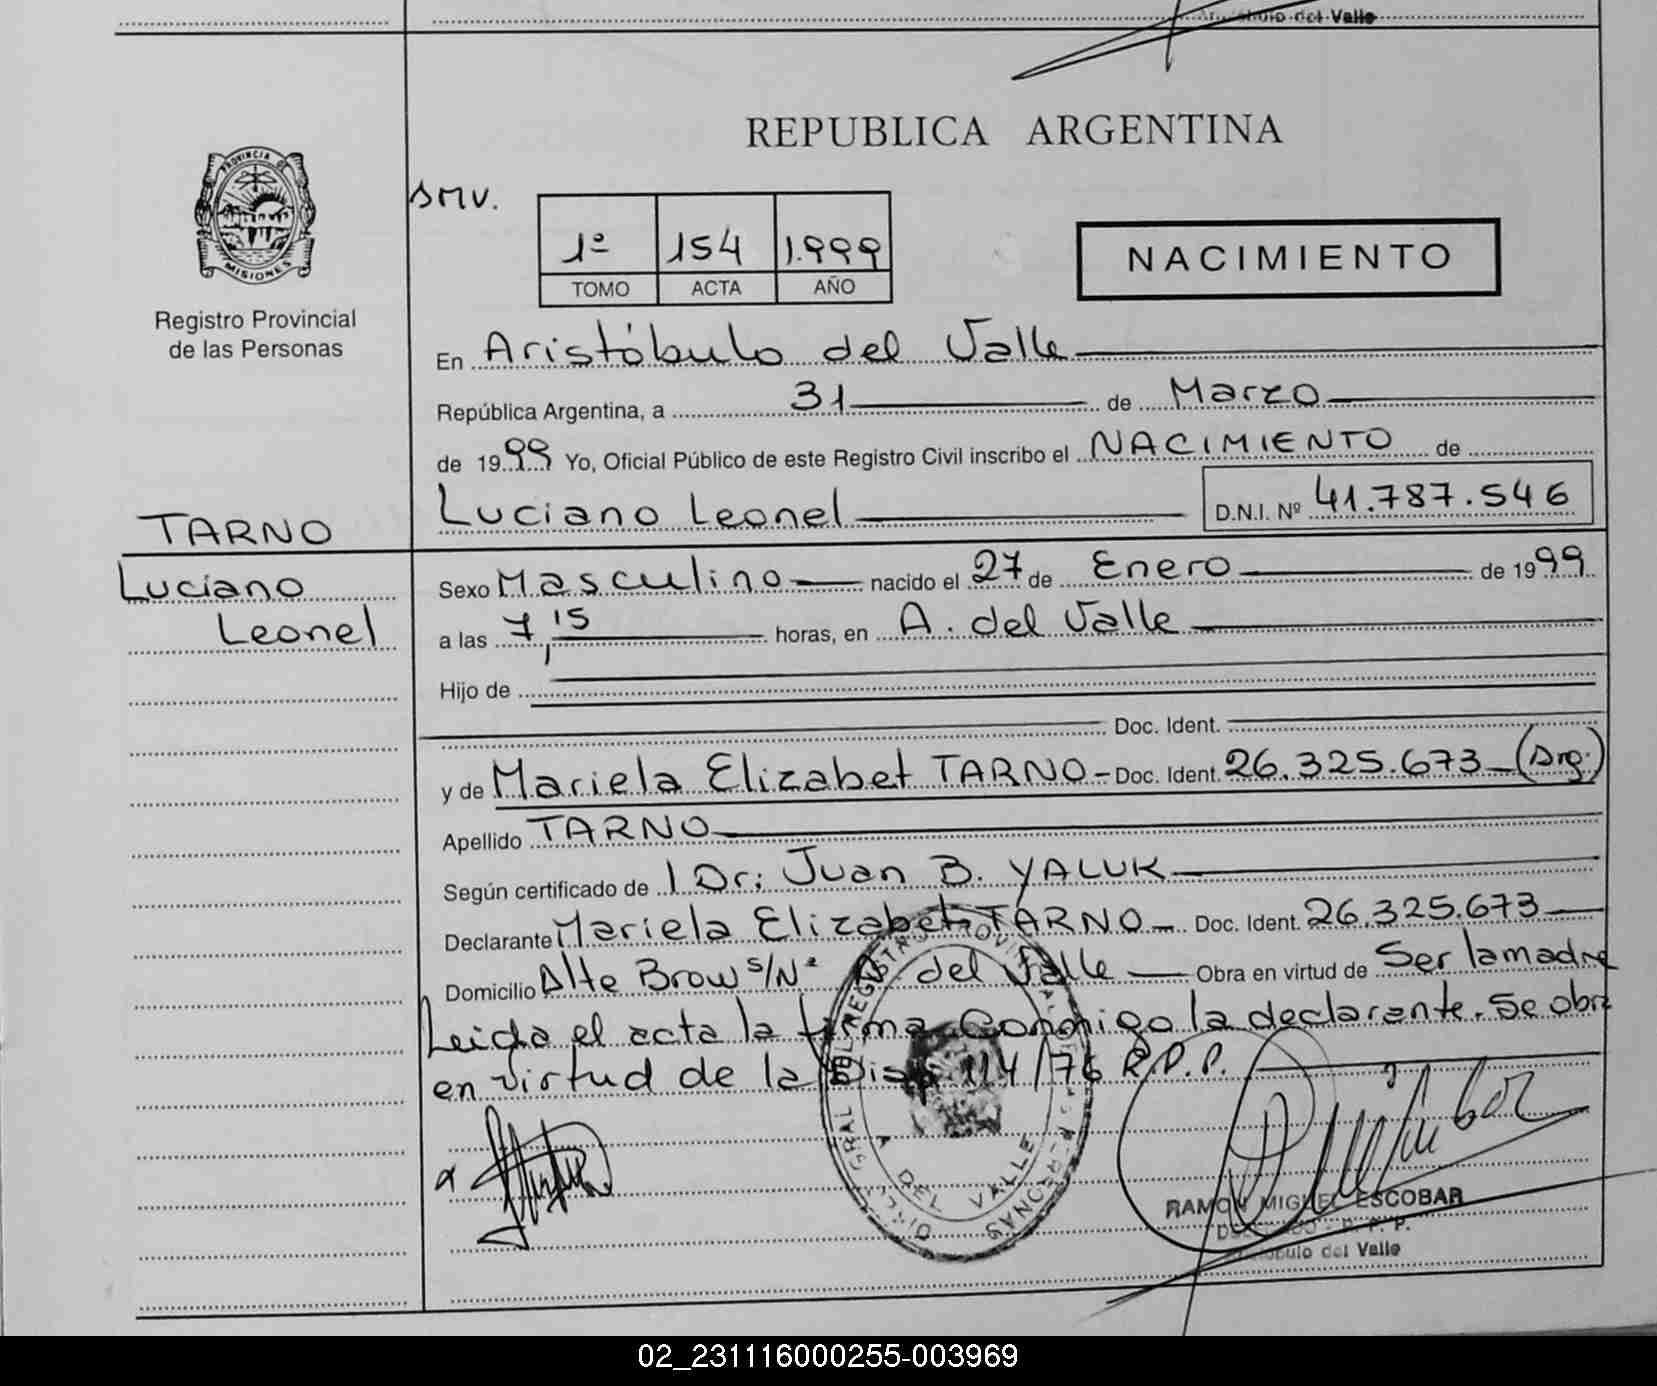 del Valle
REPUBLICA ARGENTINA
PROVINCIA DE
MISIONES
Registro Provincial
de las Personas
SMV.
1º 154 1.999
TOMO ACTA AÑO
NACIMIENTO
En Aristóbulo del Valle
República Argentina, a 31 de Marzo
de 1999 Yo, Oficial Público de este Registro Civil inscribo el NACIMIENTO de
Luciano Leonel D.N.I. Nº 41.787.546
TARNO
Luciano
Leonel
Sexo Masculino nacido el 27 de Enero de 1999
a las 7,15 horas, en A. del Valle
Hijo de
Doc. Ident.
y de Mariela Elizabet TARNO - Doc. Ident. 26.325.673 (Arg.)
Apellido TARNO
Según certificado de l Dr: Juan B. YALUK
Declarante Mariela Elizabet TARNO - Doc. Ident. 26.325.673
Domicilio Alte Brow s/Nº A. del Valle Obra en virtud de Ser la madre
Leida el acta la firma Conmigo la declarante. Se obra
en virtud de la Disp 114/76 R.P.P.
A DEL VALLE
RAMON MIGUEL ESCOBAR
R. P. P.
del Valle
02_231116000255-003969